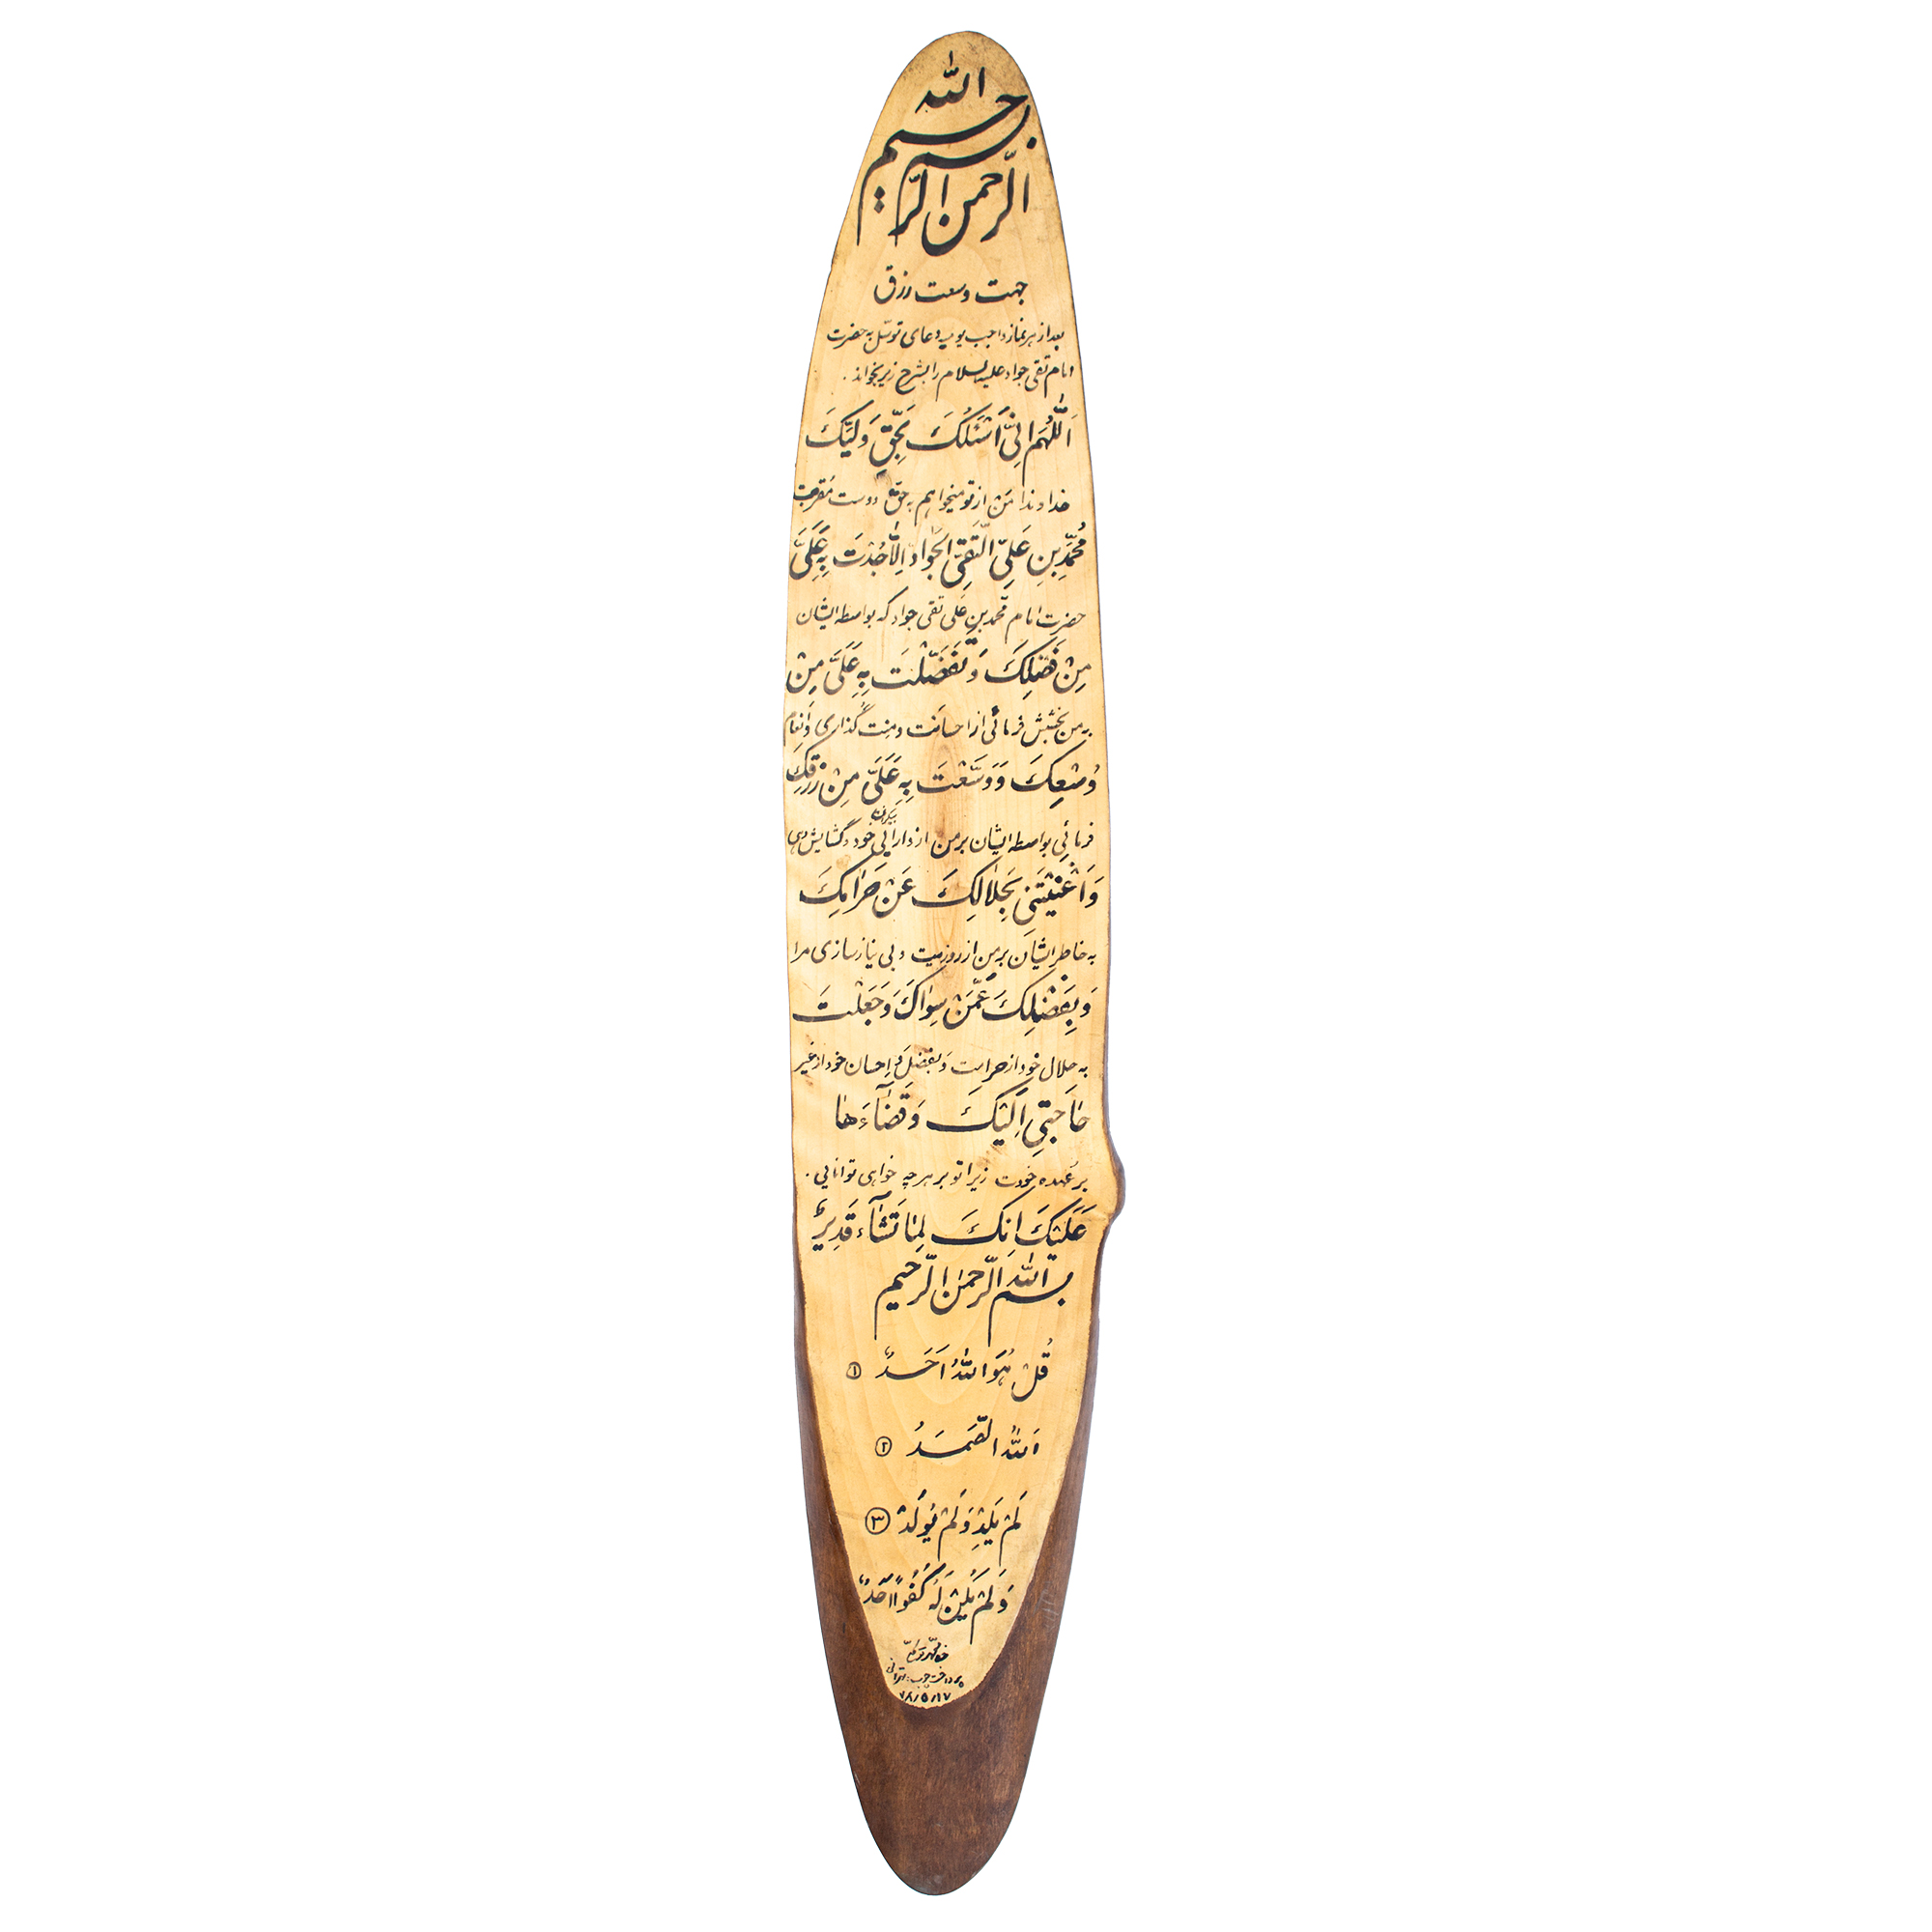 بسم الله
الرّحمن الرّحیم
جهت وسعت رزق
بعد از هر نماز واجب یومیه دعای توسّل به حضرت
امام تقی جواد علیه السلام را بشرح زیر بخواند .
اَللّٰهُمَ اِنّیِ اَسْئَلُکَ بِحَقِّ وَلیِّکَ
خداوندا مَن از تو میخواهم به حقّ دوست مُقربت
مُحَمَّدِبنِ عَلِیِّ التَقِیِّ الجَوادِ اِلّٰا جُدْتَ بِهِ عَلَیَّ
حضرت امام محّمدبن علی تقی جواد که بواسطه ایشان
مِنْ فَضْلِکَ وَ تَفَضَّلْتَ بِهِ عَلَیَّ مِنْ
به من بخشش فرمائی از احسانت و منت گذاری و اَنعام
وُسْعِکَ وَ وَسَّعْتَ بِهِ عَلَیَّ مِنْ رِزْقِکَ
فرمائی بواسطه ایشان بر من از دارایی بیکران خود و گشایش دهی
وَ اَغْنَیْتَنیِ بِحَلٰالِکَ عَنْ حَرٰامِکَ
به خاطر ایشان بر من از روزیت و بی نیاز سازی مرا
وَ بِفَضْلِکَ عَمَّنْ سِوٰاکَ وَ جَعَلْتَ
به حلال خود از حرامت وَ بفضلَ و اِحسان خود از غیر
حٰاجَتیِ اِلَیْکَ وَ قَضٰآءَهٰا
بر عُهده خودت زیرا تو بر هر چه خواهی توانایی .
عَلَیْکَ اِنکَ لِمٰا تَشٰآء قَدِیرٌ
بسم الله الرّحمٰن الرّحیم
قُلْ هُوَ اللّٰهُ اَحَدٌ ۱
اَللّٰهُ الصَّمَدُ ۲
لَمْ یَلِدْ وَ لَمْ یُولَدْ ۳
وَ لَمْ یَکُنْ لَهُ کُفُواً اَحَدٌ
۷۸/۵/۱۷